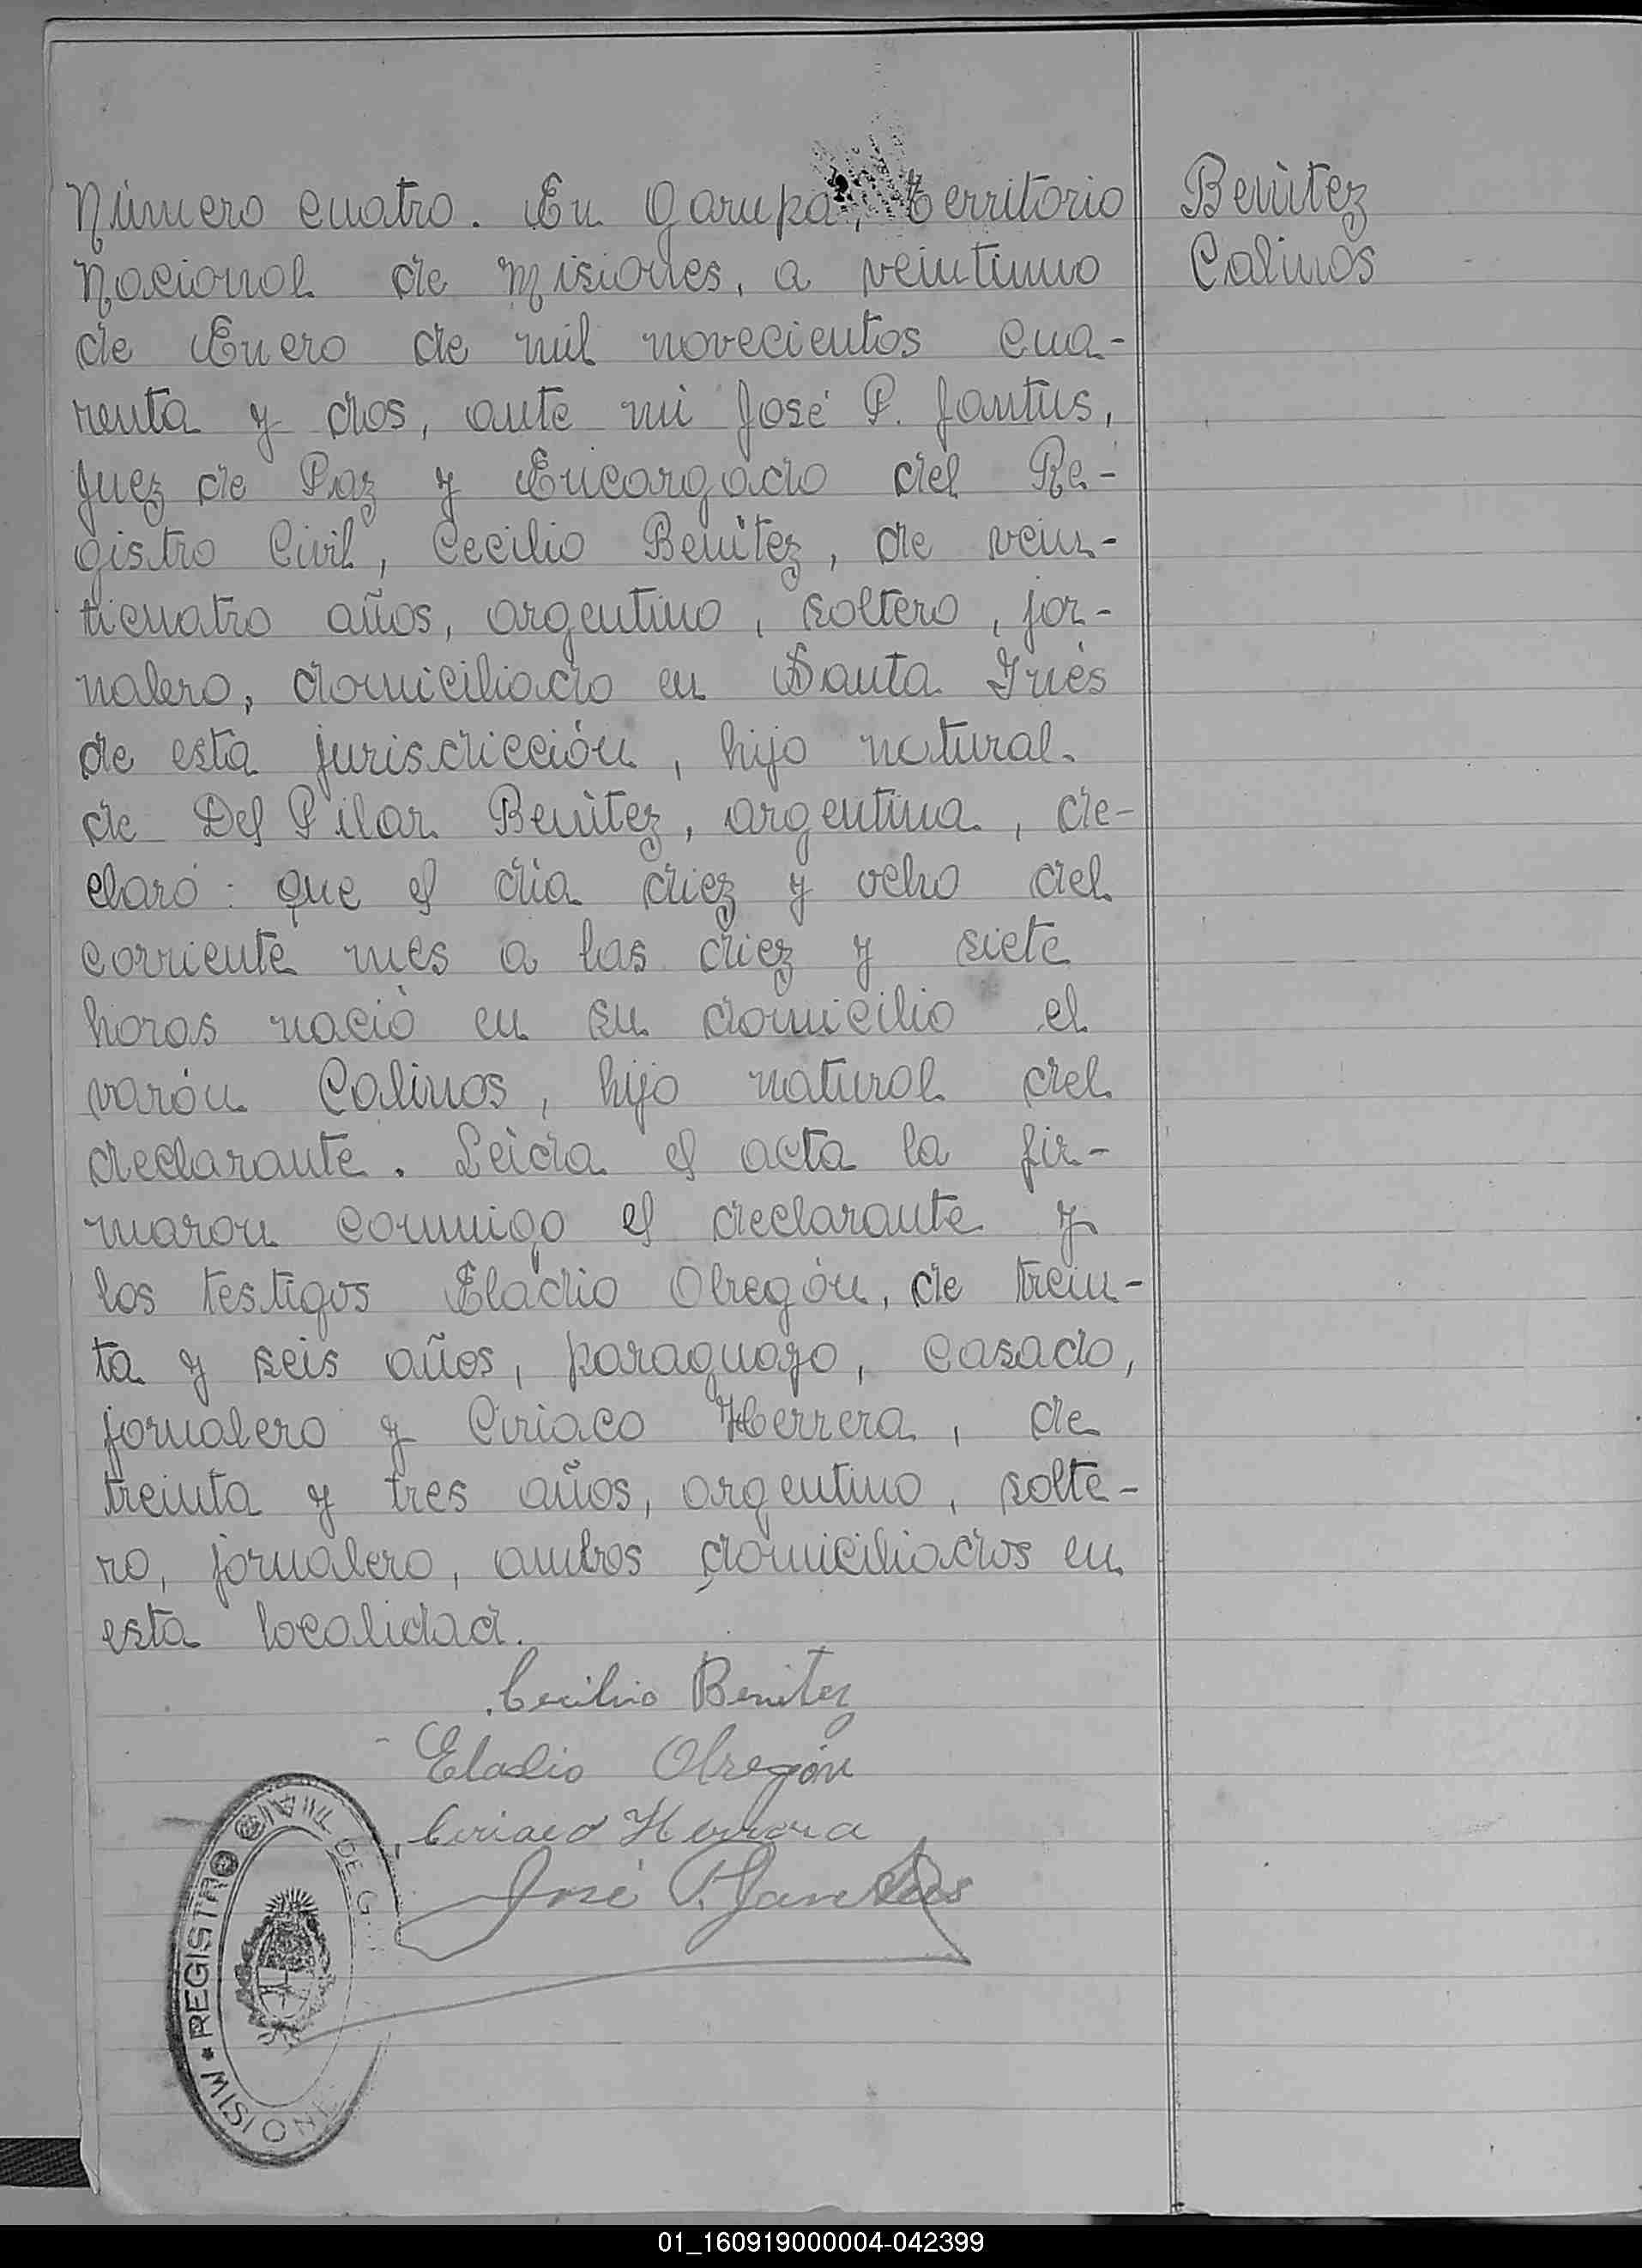 Número cuatro. En Garupá, territorio
Nacional de Misiones, a veintiuno
de Enero de mil novecientos cua-
renta y dos, ante mi José P. Jantus,
Juez de Paz y Encargado del Re-
gistro Civil, Cecilio Benítez, de vein-
ticuatro años, argentino, soltero, jor-
nalero, domiciliado en Santa Inés
de esta jurisdicción, hijo natural
de Del Pilar Benítez, argentina, de-
claró: que el día diez y ocho del
corriente mes a las diez y siete
horas nació en su domicilio el
varón Calinos, hijo natural del
declarante. Leida el acta la fir-
maron conmigo el declarante y
los testigos Eladio Obregón, de trein-
ta y seis años, paraguayo, casado,
jornalero y Ciriaco Herrera, de
treinta y tres años, argentino, solte-
ro, jornalero, ambos domiciliados en
esta localidad.
Benítez
Calinos
Cecilio Benitez
Eladio Obregón
Ciriaco Herrera
José P. Jantus
REGISTRO CIVIL DE G
MISIONE
01_160919000004-042399